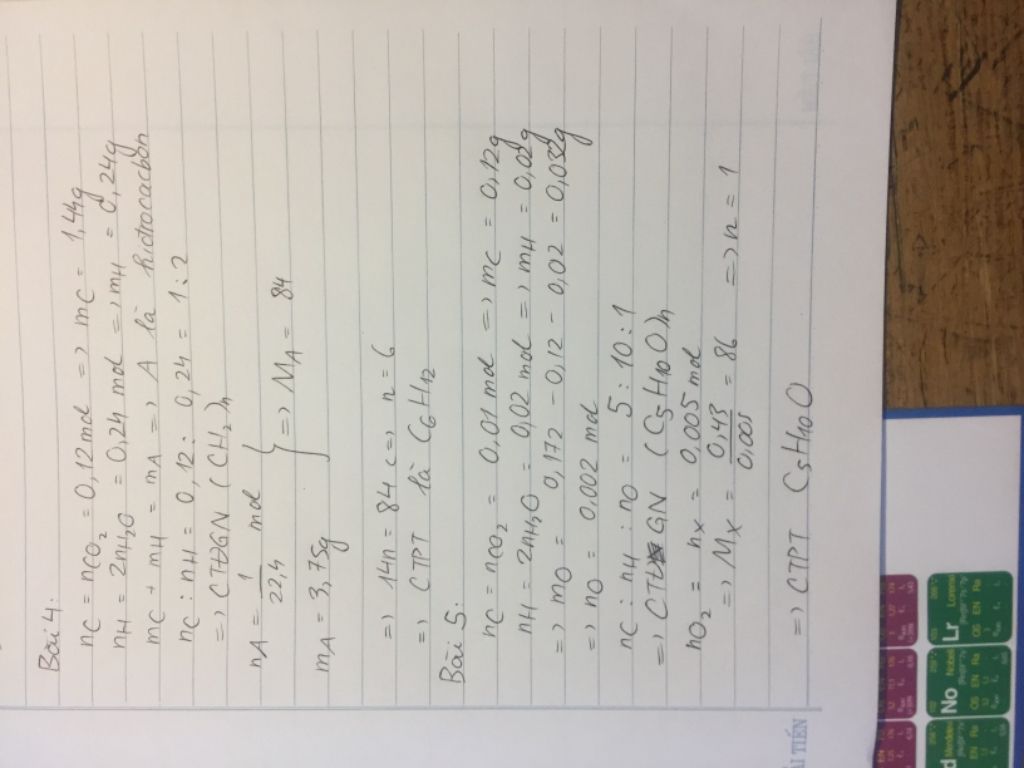 Bài 4.
nC = nCO₂ = 0,12 mol => mC = 1,44g
nH = 2nH₂O = 0,24 mol => mH = 0,24g
mC + mH = mA => A là hidrocacbon
nC : nH = 0,12 : 0,24 = 1 : 2
=> CTĐGN (CH₂)n
nA = 1/22,4 mol
mA = 3,75g } => MA = 84
=> 14n = 84 <=> n = 6
=> CTPT là C₆H₁₂
Bài 5.
nC = nCO₂ = 0,01 mol => mC = 0,12g
nH = 2nH₂O = 0,02 mol => mH = 0,02g
=> mO = 0,172 - 0,12 - 0,02 = 0,032g
=> nO = 0,002 mol
nC : nH : nO = 5 : 10 : 1
=> CTĐGN (C₅H₁₀O)n
nO₂ = nX = 0,005 mol
=> MX = 0,43/0,005 = 86 => n = 1
=> CTPT C₅H₁₀O
ẢI TIẾN
No
Lr